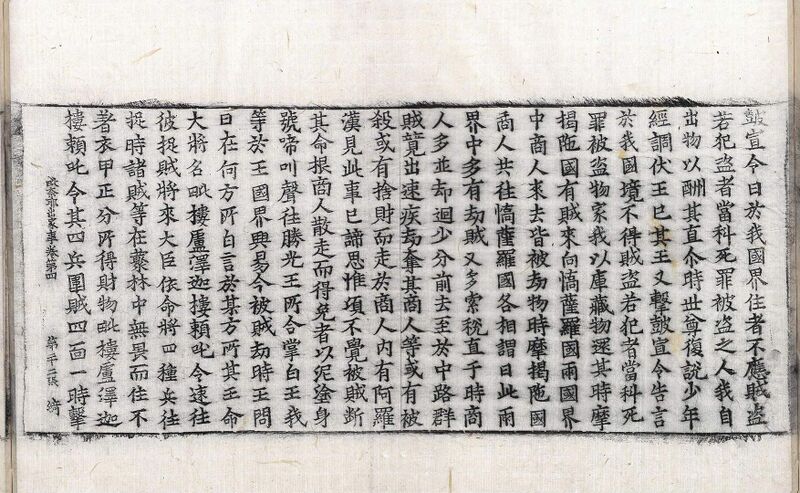 皷宣令曰於我國界住者不應賊盜
若犯盜者當科死罪被盜之人我自
出物以酬其直尒時世尊復說少年
經調伏王已其王又擊皷宣令告言
於我國境不得賊盜若犯者當科死
罪被盜物家我以庫藏物還其時摩
揭陁國有賊來向憍薩羅國兩國界
中商人來去皆被劫物時摩揭陁國
商人共往憍薩羅國各相謂曰此兩
界中多有劫賊又多索稅直于時商
人多並却迴少分前去至於中路群
賊竟出速疾劫奪其商人等或有被
殺或有捨財而走於商人內有阿羅
漢見此事已諦思惟頃不覺被賊斷
其命根商人散走而得免者以泥塗身
號啼叫聲往勝光王所合掌白王我
等於王國界興易今被賊劫時王問
曰在何方所白言於某方所其王命
大將名毗樓盧澤迦樓賴吒令速往
彼捉賊將來大臣依命將四種兵往
捉時諸賊等在藂林中無畏而住不
著衣甲正分所得財物毗樓盧澤迦
樓賴吒令其四兵圍賊四面一時擊
奈耶出家事卷第四 第十二張 綺